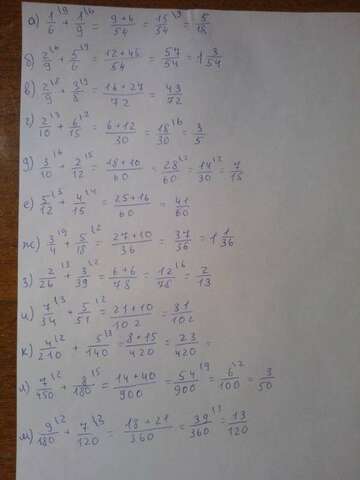 а) 1/6 \9 + 1/9 \6 = 9+6/54 = 15/54 \3 = 5/18
б) 2/9 \6 + 5/6 \9 = 12+45/54 = 57/54 = 1 3/54
в) 2/9 \8 + 3/8 \9 = 16+27/72 = 43/72
г) 2/10 \3 + 6/15 \2 = 6+12/30 = 18/30 \6 = 3/5
д) 3/10 \6 + 2/12 \5 = 18+10/60 = 28/60 \2 = 14/30 \2 = 7/15
е) 5/12 \5 + 4/15 \4 = 25+16/60 = 41/60
ж) 3/4 \9 + 5/18 \2 = 27+10/36 = 37/36 = 1 1/36
з) 2/26 \3 + 3/39 \2 = 6+6/78 = 12/78 \6 = 2/13
и) 7/34 \3 + 5/51 \2 = 21+10/102 = 31/102
к) 4/210 \2 + 5/140 \3 = 8+15/420 = 23/420 =
л) 7/450 \2 + 8/180 \5 = 14+40/900 = 54/900 \9 = 6/100 \2 = 3/50
м) 9/180 \2 + 7/120 \3 = 18+21/360 = 39/360 \3 = 13/120